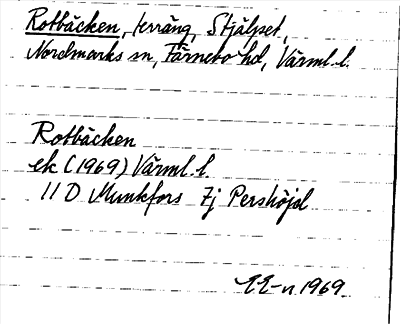 Rotbäcken, terräng, Stjälpet,
Nordmarks sn, Färnebo hd, Värml. l.
Rotbäcken
ek (1969) Värml. l.
11 D Munkfors 7j Pershöjd
EE-n 1969